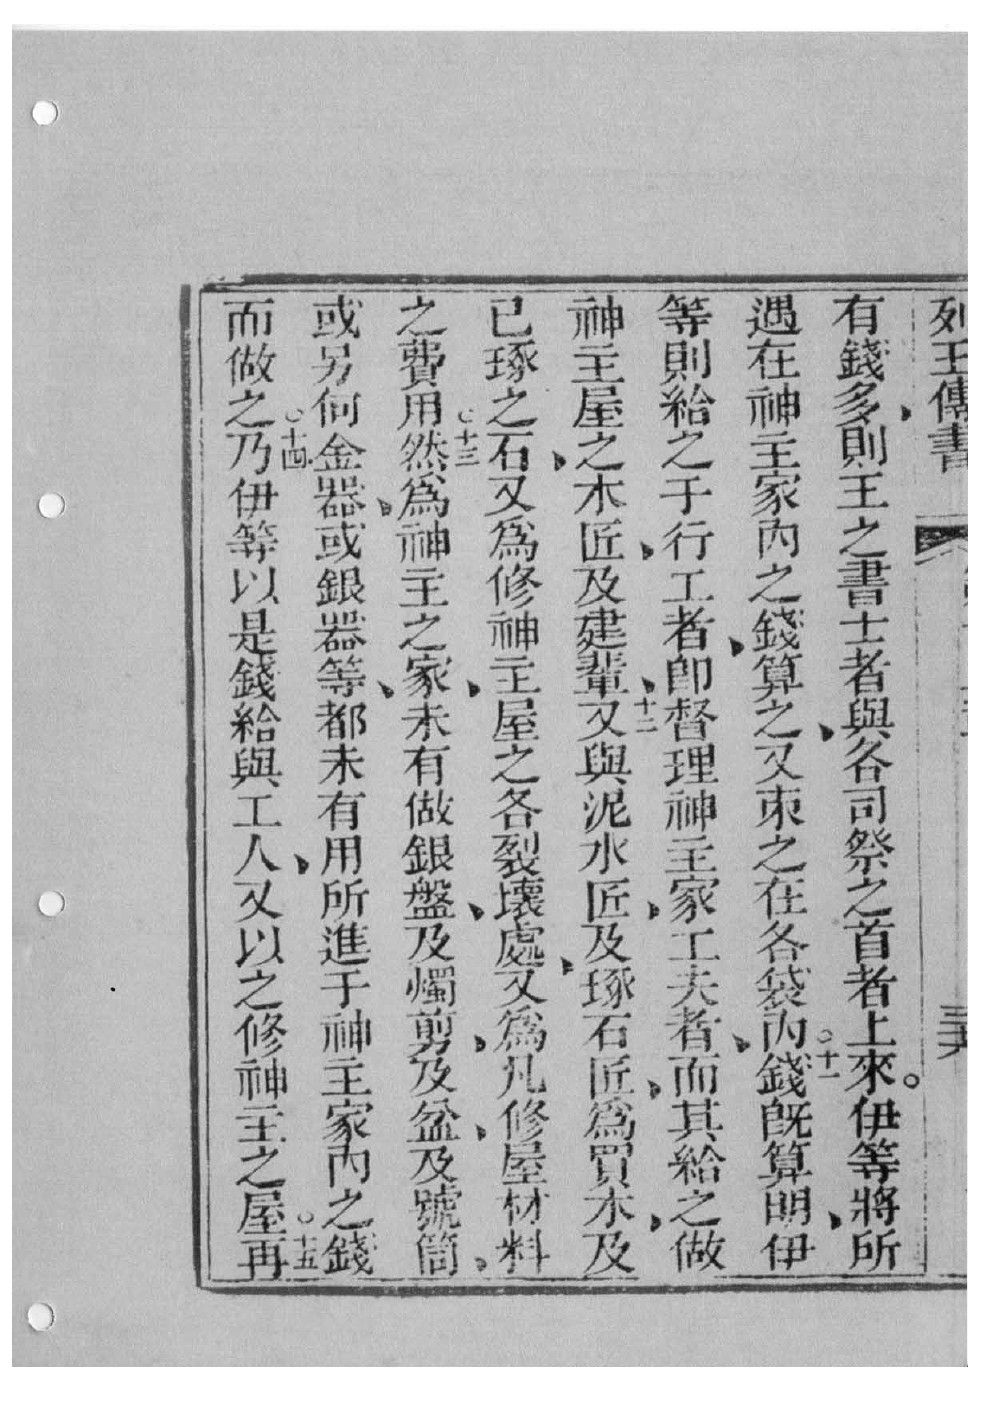 列王傳書
三六
有錢多則王之書士者與各司祭之首者上來。伊等將所
遇在神主家內之錢算之又朿之在各袋內○十一錢既算明伊
等則給之于行工者即督理神主家工夫者而其給之做
神主屋之木匠及建輩○十二又與泥水匠及琢石匠為買木及
已琢之石又為修神主屋之各裂壞處又為凡修屋材料
之費用○十三然為神主之家未有做銀盤及燭剪及盆及號筒
或另何金器或銀器等都未有用所進于神主家內之錢
而做之○十四乃伊等以是錢給與工人又以之修神主之屋○十五再